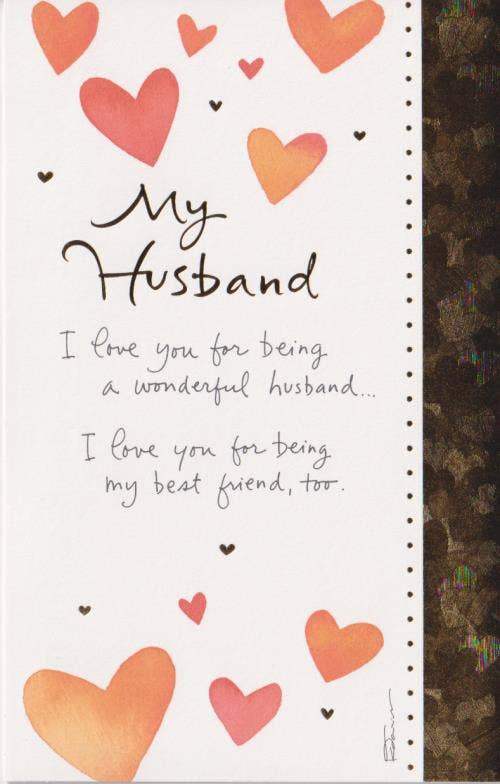 My
Husband
I love you for being
a wonderful husband...
I love you for being
my best friend, too.